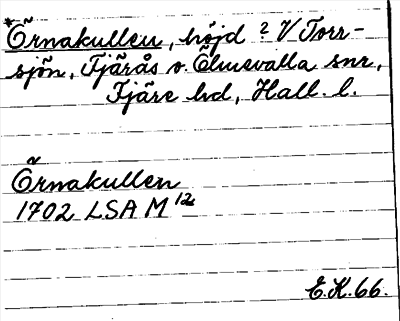 *Örnakullen, höjd ? V Torr-
sjön, Fjärås o. Ölmevalla snr,
Fjäre hd, Hall. l.
Örnakullen
1702 LSA M 12
E.K. 66.